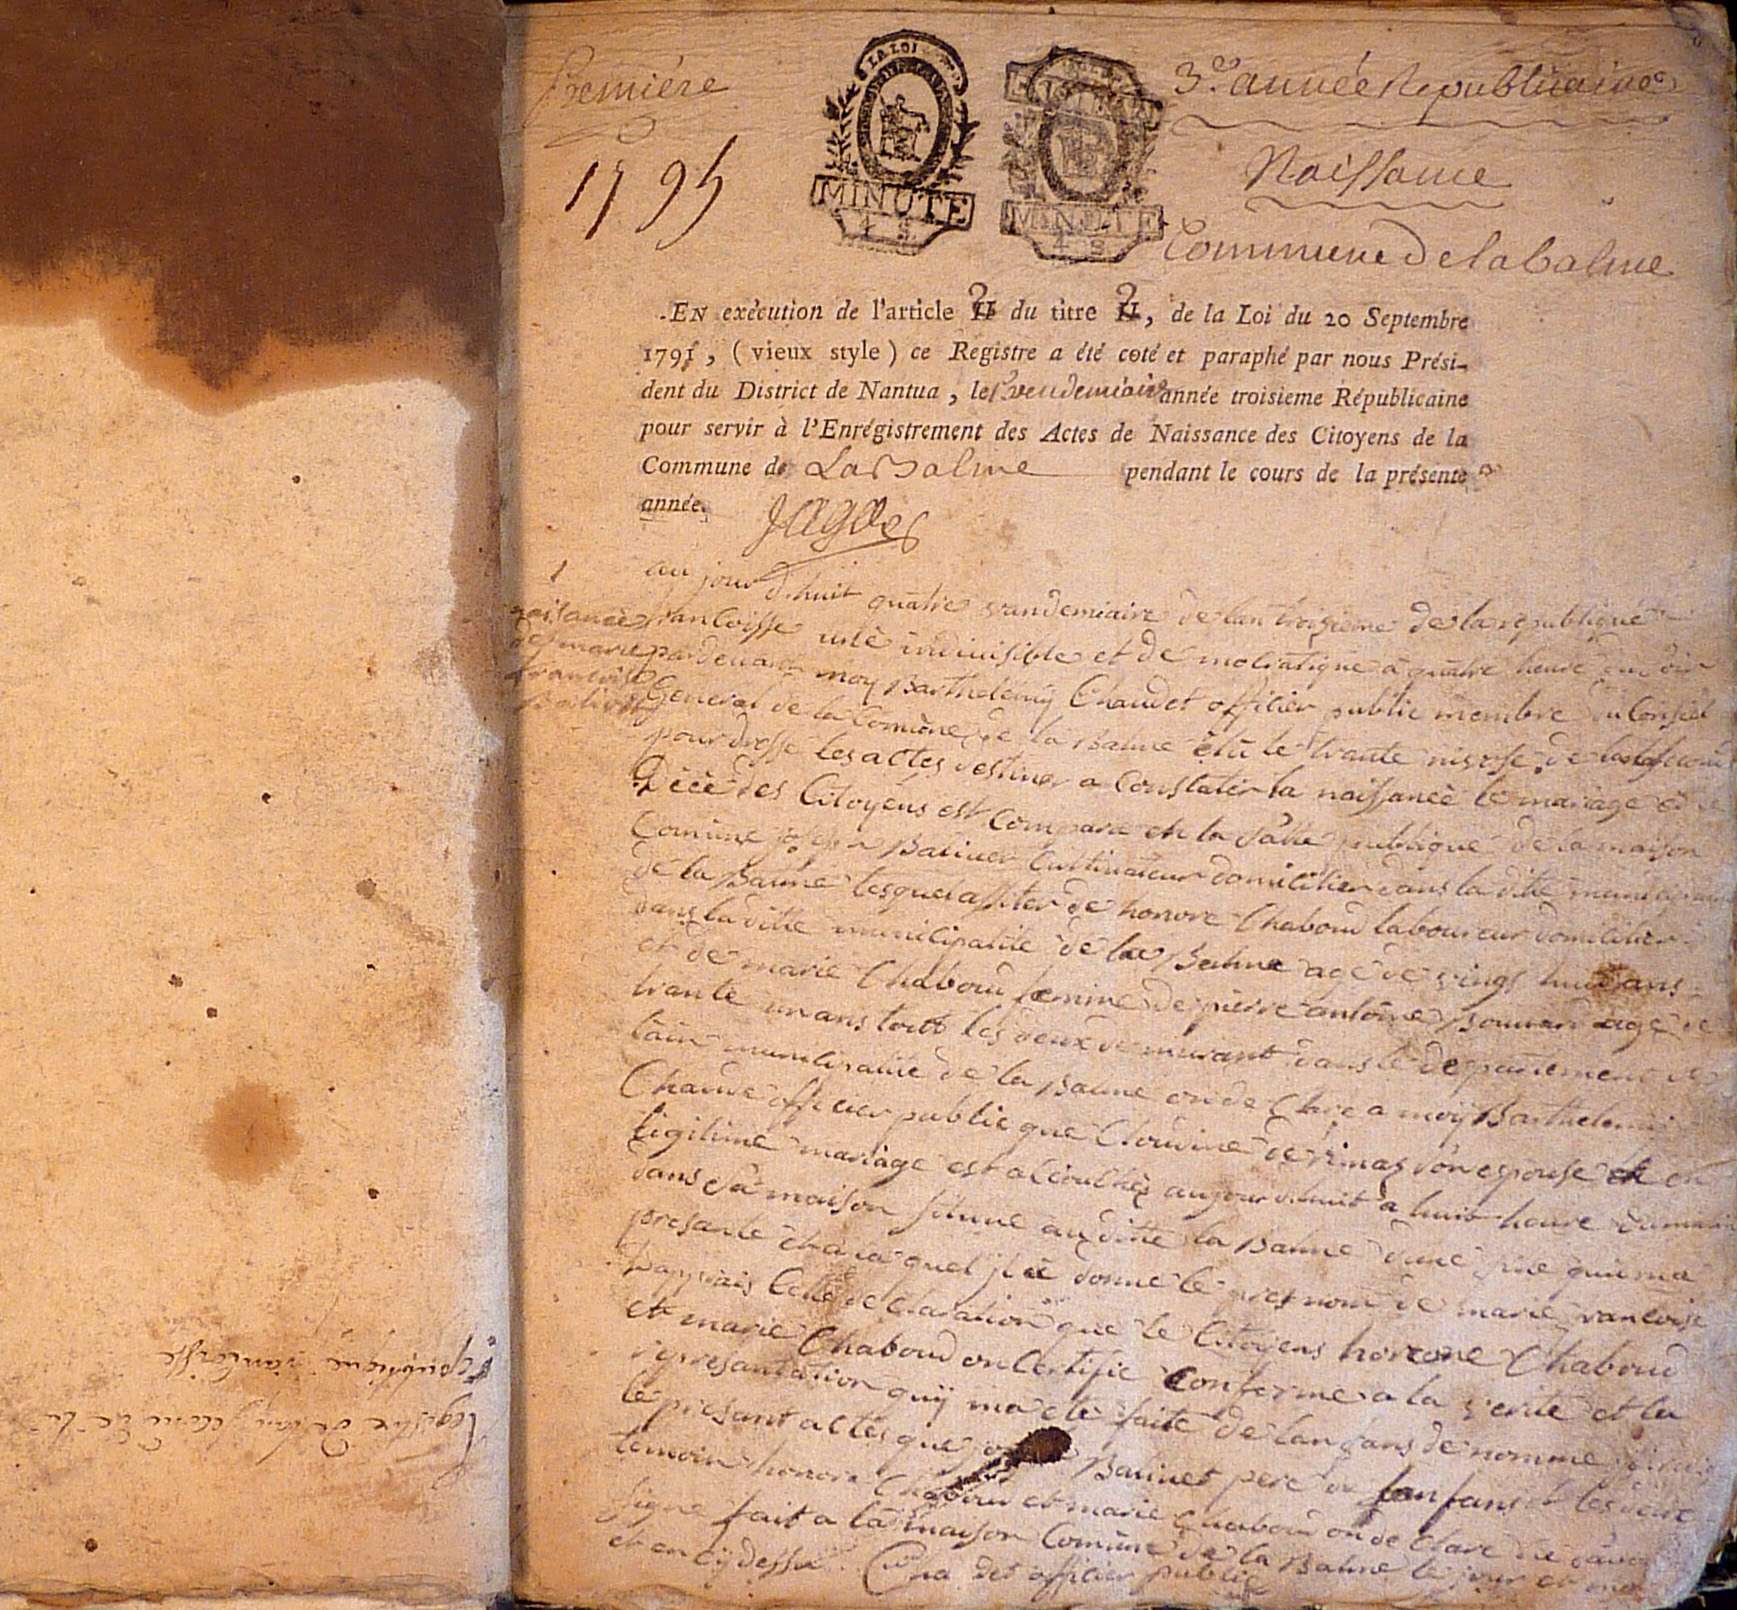 Premiére
1795
LA LOI
MINUTE
4 S
MINUTE
4 S
3e année Republicaine
Naissance
Commune De la balme
EN exécution de l'article 2 du titre 2, de la Loi du 20 Septembre
1791, (vieux style) ce Registre a été coté et paraphé par nous Prési-
dent du District de Nantua, le vendemiaire année troisieme Républicaine
pour servir à l'Enrégistrement des Actes de Naissance des Citoyens de la
Commune de La Balme pendant le cours de la présente
année.
1
naisance
de marie
francoise
au jour d'huit quatre vandemiaire de lan troisieme de la republique
francoisse unè indivisible et de mocratique a quatre heure du soir
pardevant moy Barthelemy Chaudet officier public membre du Conseil
General de la Comune de la Balme élu le trante nivose de
pour dresse les actes destiner a Constater la naissance le mariage et le
Décè des Citoyens est Compara en la Salle publique de la maison
Comune joseph Balivet Cultivateur domicilier dans la ditte municipalite
de la Balme lesquel assiter de honore Chaboud laboureur domicilier
dans la ditte municipalite de la Balme age de vingt huit ans
et de marie Chaboud femme de pierre antoine Bouvard age de
trante un ans tout les deux demurant dans le departement de
lain municipalite de la Balme on de Clare a moy Barthelemi
Chaudet officier public que Claudine de rimaz son espouse en
legitime mariage est acouchée aujourdhuit a huit heure du matin
dans sa maison situué au ditte la Balme dune fille qui ma
presante et a la quel jl a donné le presnom de marie francoise
dapprais Cette de Claration que le Citoyens honore Chaboud
et marie Chaboud on Certifie Conforme a la verite et la
represantation quÿ ma été faite de lanfans de nomme
le presant actes que joseph Balivet pere de lanfans et les deux
temoin honore Chaboud et marie Chaboud on de Clare ne savoir
signe fait a la maison Comune de la Balme le jour et mois
et an cÿ dessu Chaudet officier public